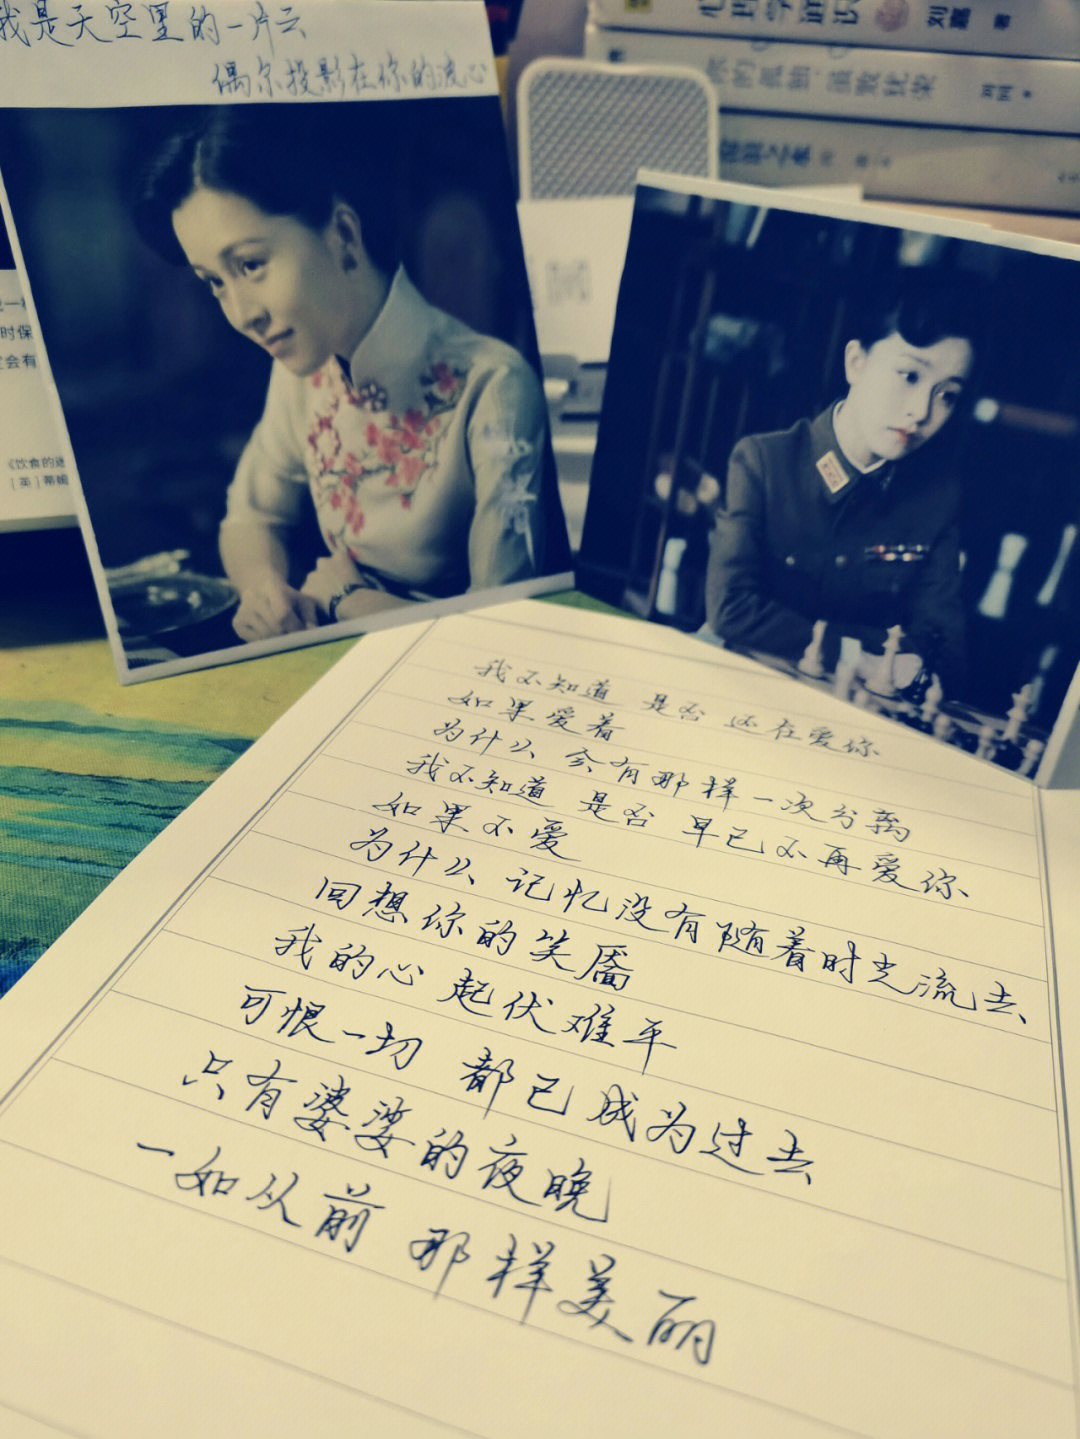 我是天空里的一片云
偶尔投影在你的波心
心理学通识
刘嘉 著
你的孤独 虽败犹荣
时保
会有
《饮食的迷
[英]蒂姆
我不知道 是否 还在爱你
如果爱着
为什么 会有那样一次分离
我不知道 是否 早已不再爱你
如果不爱
为什么 记忆没有随着时光流去
回想你的笑靥
我的心 起伏难平
可恨一切 都已成为过去
只有婆娑的夜晚
一如从前 那样美丽